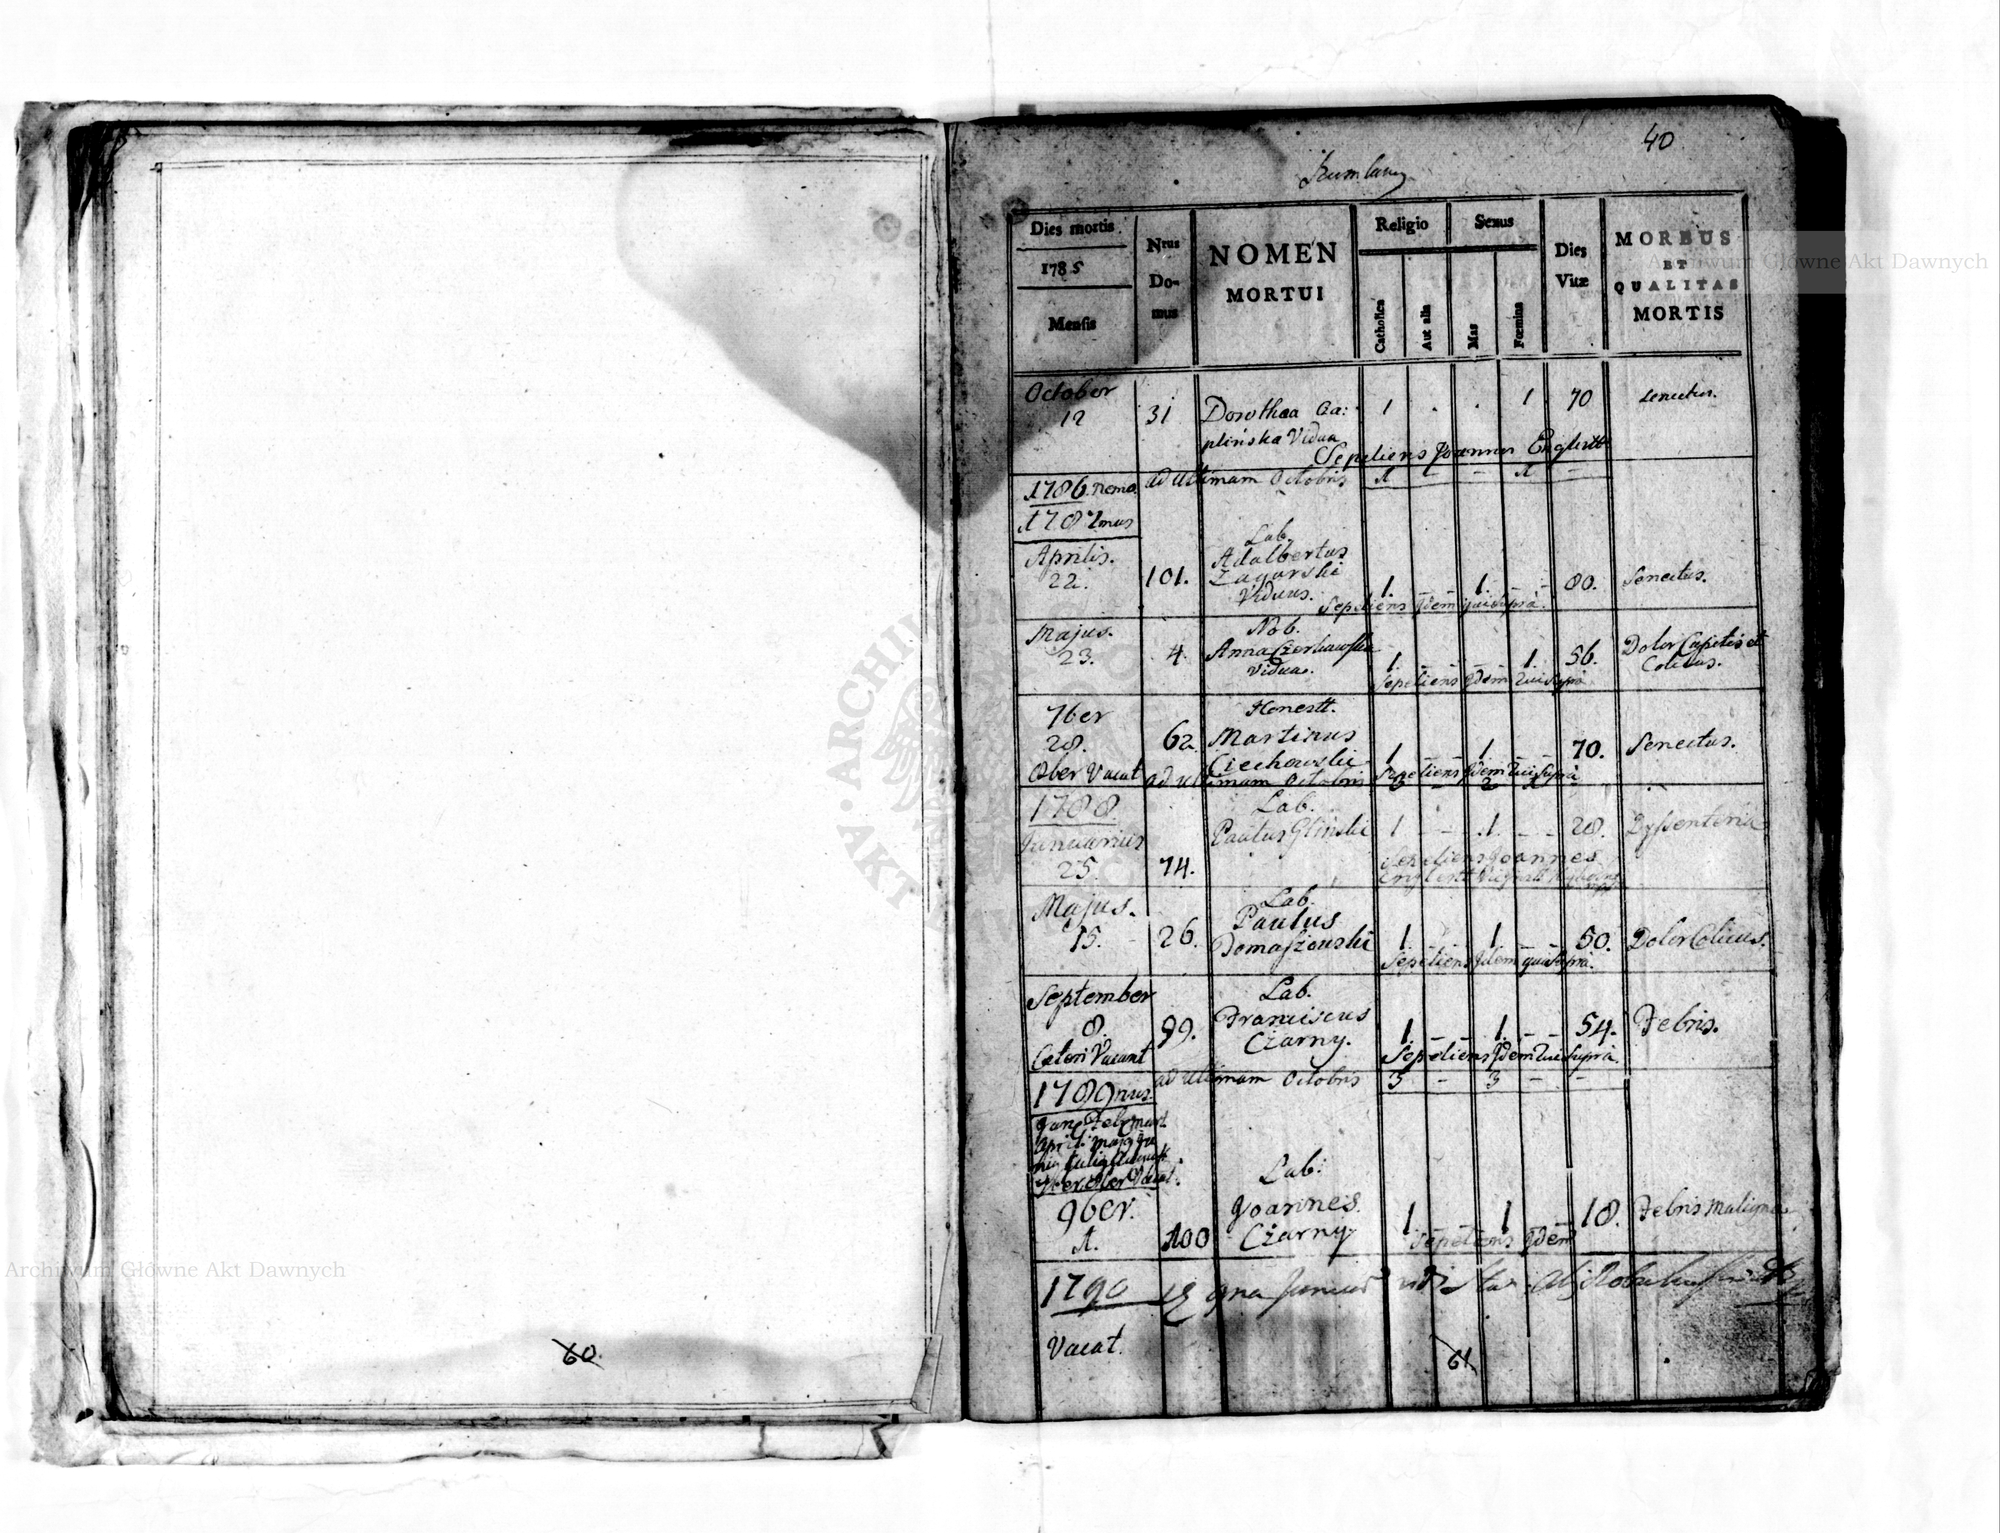 40
Dies mortis
1785
Mensis
Nrus Do- mus
NOMEN
MORTUI
Religio
Catholica
Aut alia
Sexus
Mas
Fœmina
Dies
Vitæ
MORBUS
ET
QUALITAS
MORTIS
October
12 31 Dorothea Ca: 1 . . 1 70 senectus.
plińska Vidua
Sepeliens Joannes Englertt
ad ultimam Octobris 1 - - 1 -
1786. nemo.
1787mus
Aprilis. Lab.
22. 101. Adalbertus
Zagorski 1. 1. - - 80. Senectus.
Viduus.
Sepeliens Idem qui supra.
Majus. Nob.
23. 4. Anna 1. - - 1. 56. Dolor Capitis et
Vidua. Colicus.
Sepeliens Idem qui supra
7ber Honestt.
28. 62 Martinus 1 - 1 - - 70. Senectus.
Ciechowski
Sepeliens Idem qui supra
8ber Vacat ad ultimam Octobris
1788. Lab.
Januarius Paulus Glinski 1 - - 1 - - 28. Dyssenteria
25. 74.
Sepeliens Joannes
Englertt
Majus. Lab.
15. 26. Paulus
Domaszowski 1. 1. - - 50. Dolor Colicus.
Sepeliens Idem qui supra.
September Lab.
8. 99. Franciscus
Czarny. 1. - - 1. - - 54. Febris.
Cæteri Vacant Sepeliens Idem qui supra.
ad ultimam Octobris 3 - 3 - -
1789nus.
9ber. Lab:
1. 100 Joannes
Czarny 1 1 18. Febris Maligna
Sepeliens Idem
1790
Vacat.
60
61
Archiwum Główne Akt Dawnych
Archiwum Główne Akt Dawnych